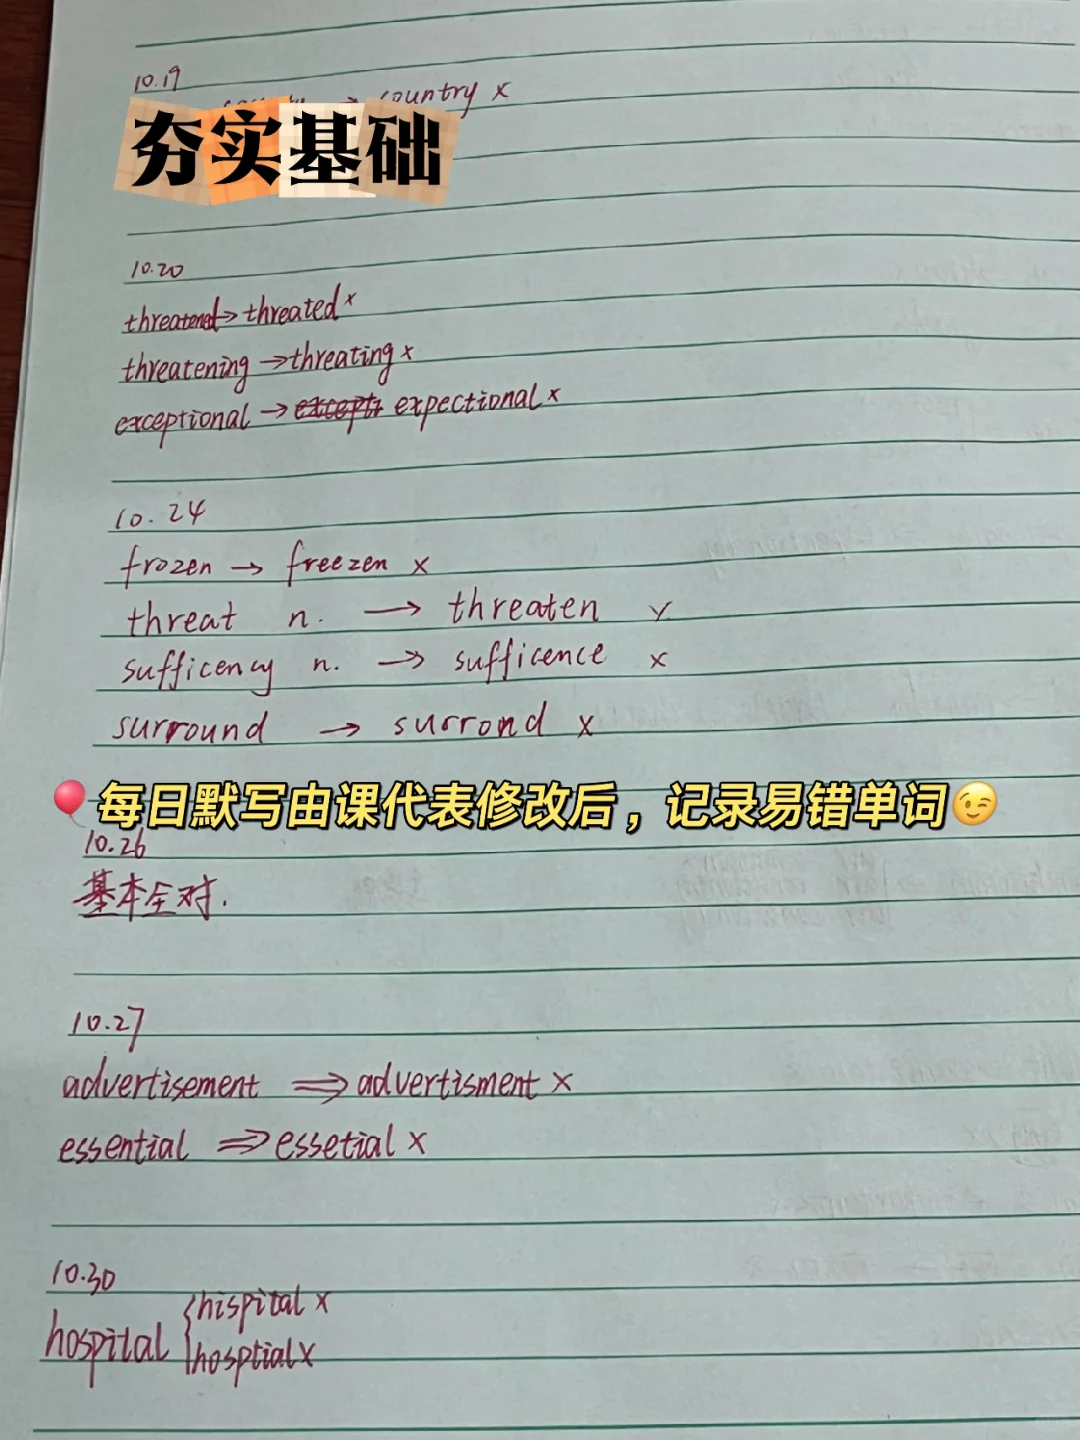 10.19
→ country x
夯实基础
10.20
threatened→ threated x
threatening →threating x
exceptional → expectional x
10.24
frozen → freezen x
threat n. → threaten x
sufficency n. → sufficence x
surround → surrond x
🎈每日默写由课代表修改后，记录易错单词😉
10.26
基本全对.
10.27
advertisement ⇒ advertisment x
essential ⇒ essetial x
10.30
hospital { hispital x
hosptial x